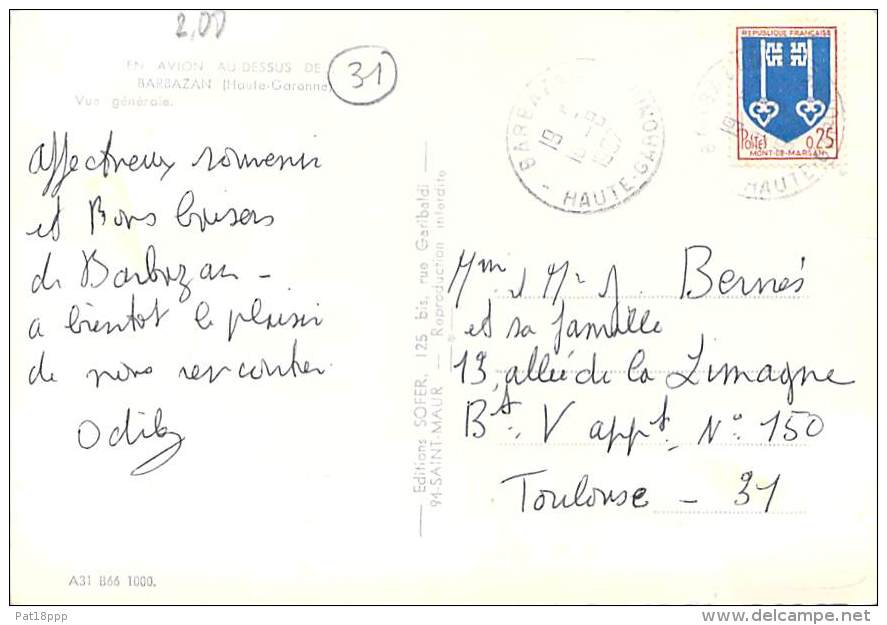 2,00
EN AVION AU-DESSUS DE
BARBAZAN (Haute-Garonne)
Vue générale.
31
affectueux souvenir
et Bons baisers
de Barbazan -
a bientot le plaisir
de nous rencontrer
Odile
Editions SOFER, 125 bis, rue Garibaldi
94-SAINT-MAUR — Reproduction interdite
BARBAZAN
19 H
18 - 8
1967
- HAUTE-GARONNE
REPUBLIQUE FRANÇAISE
POSTES 0,25
MONT-DE-MARSAN
Mme et Mr J. Bernès
et sa famille
13, allée de la Limagne
Bt. V appt. N° 150
Toulouse - 31
A31 B66 1000.
Pat18ppp
delcampe.net